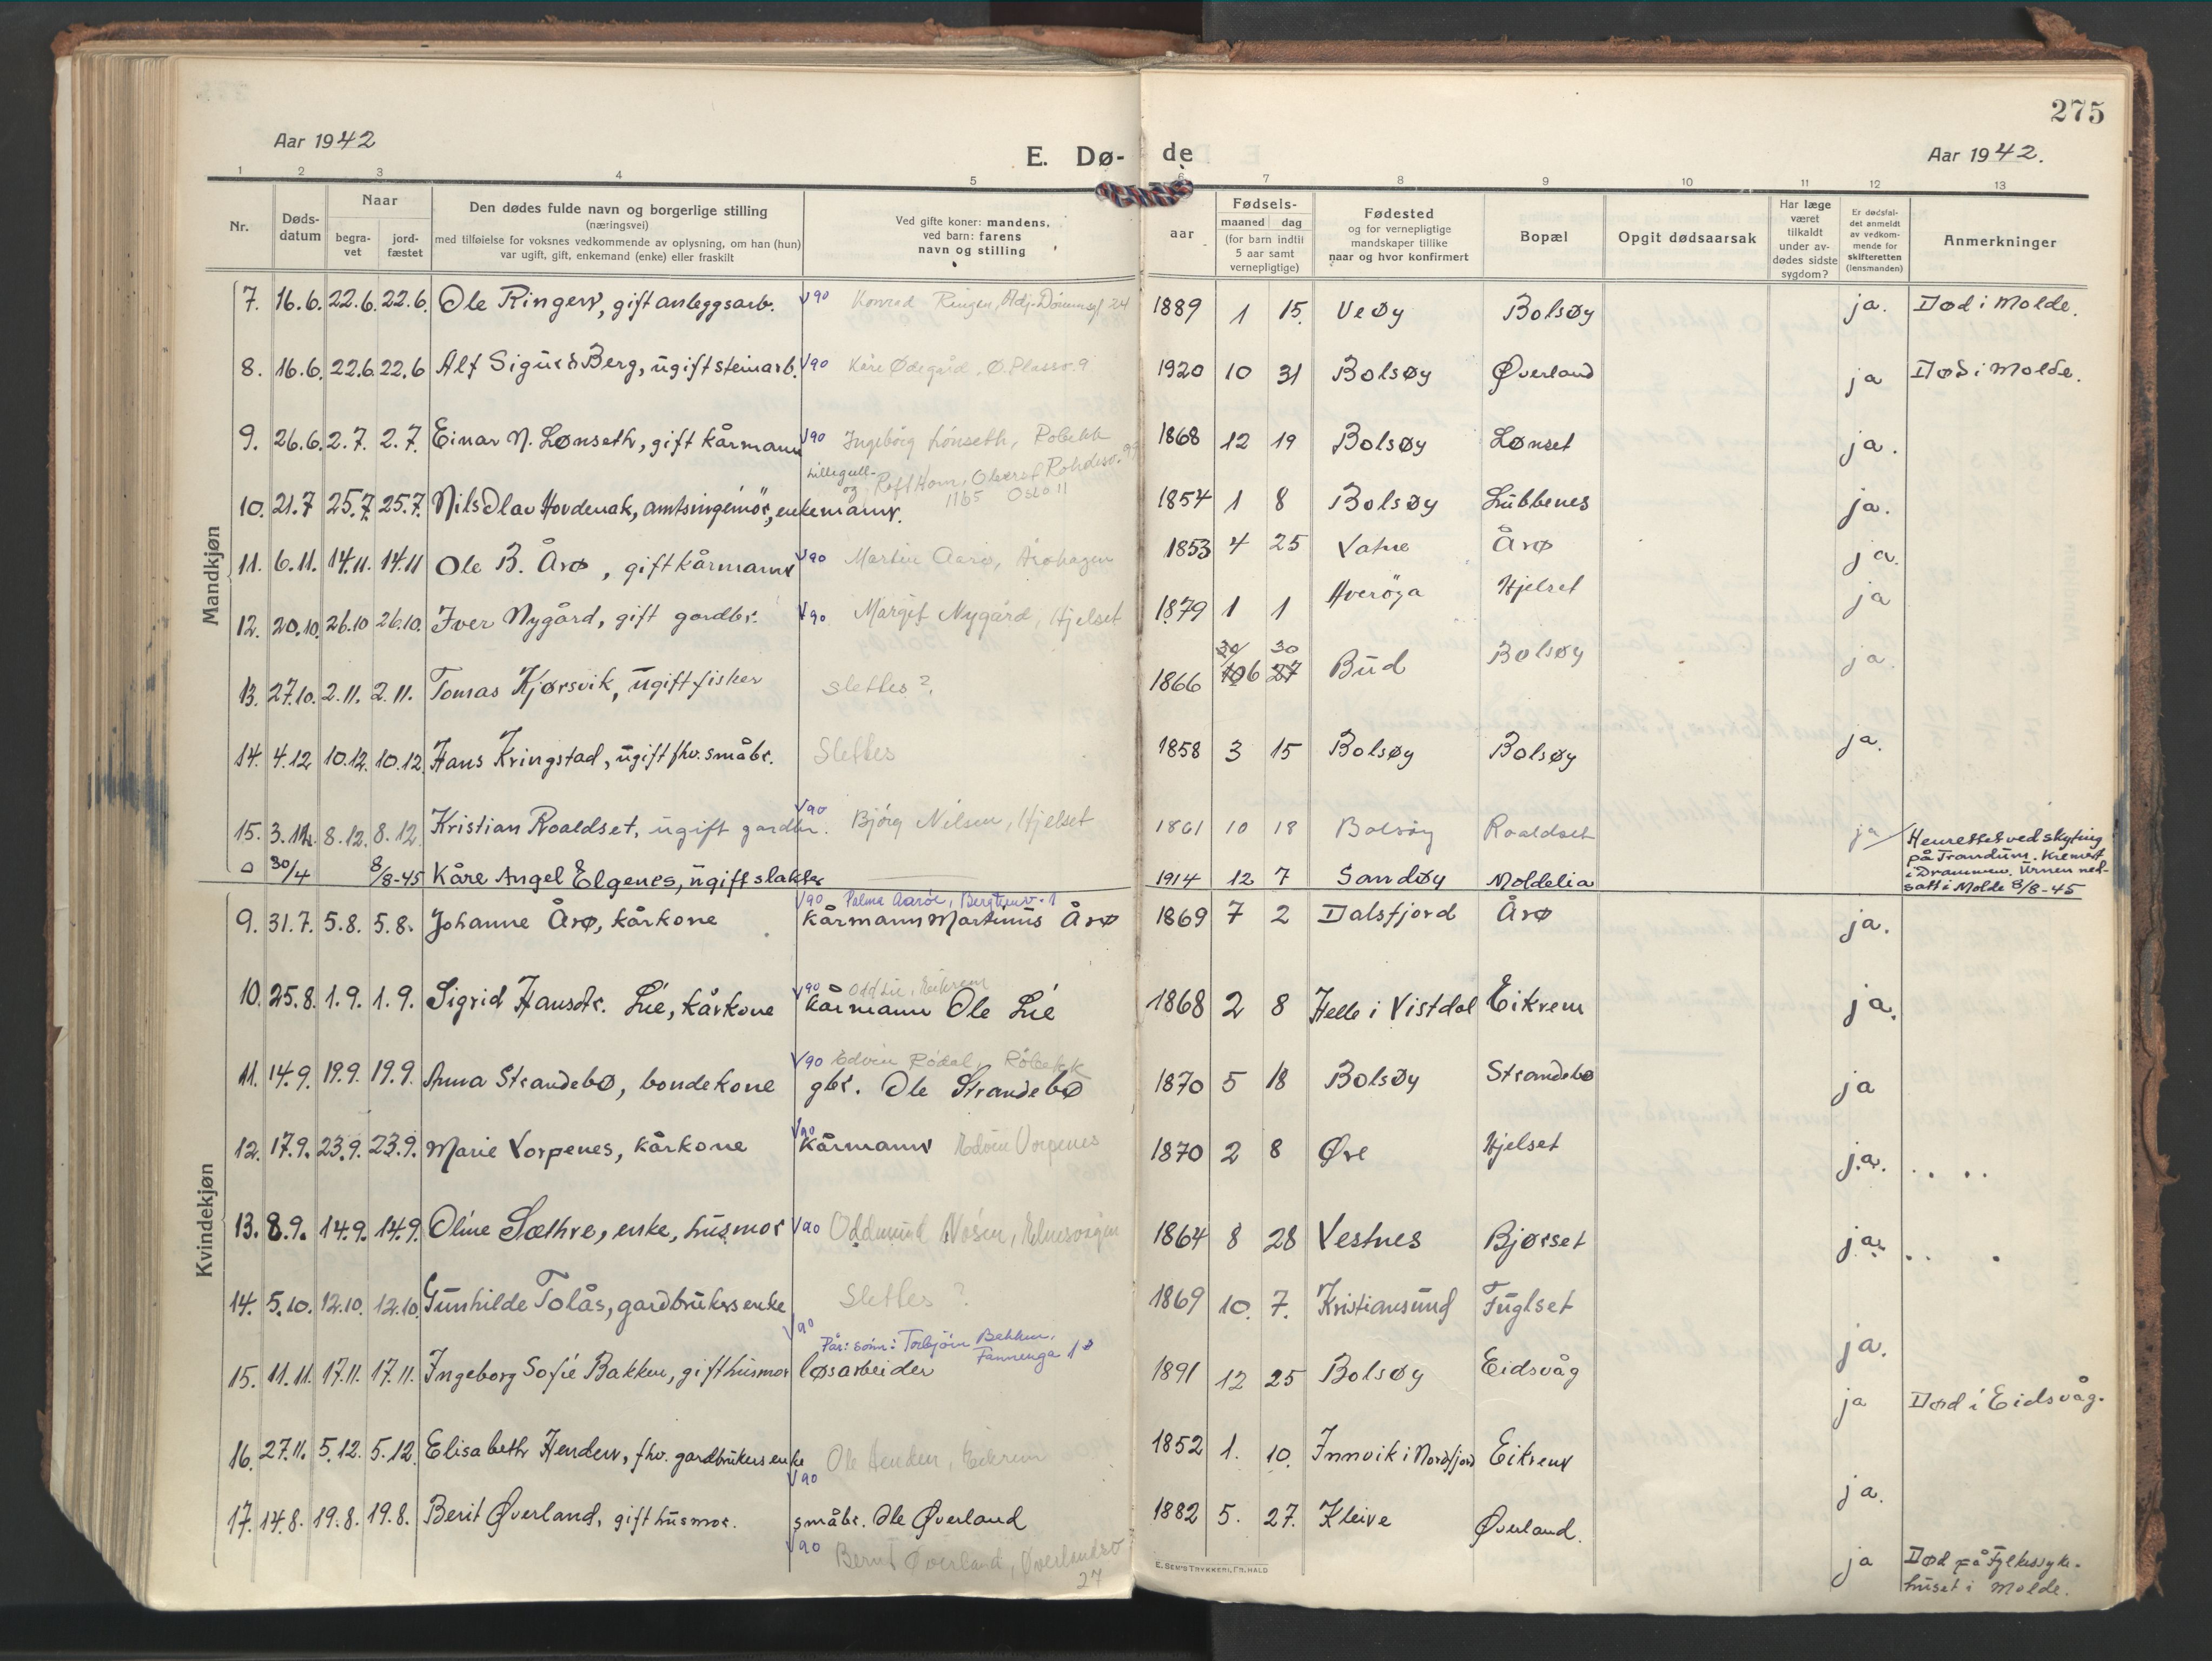 275
Aar 1942
E. Dø- de
Aar 1942.
1 2 3 4 5 6 7 8 9 10 11 12 13
Nr.
Døds-
datum
Naar
begra-
vet
jord-
fæstet
Den dødes fulde navn og borgerlige stilling
(næringsvei)
med tilføielse for voksnes vedkommende av oplysning, om han (hun)
var ugift, gift, enkemand (enke) eller fraskilt
Ved gifte koner: mandens,
ved barn: farens
navn og stilling
aar
Fødsels-
maaned dag
(for barn indtil
5 aar samt
vernepligtige)
Fødested
og for vernepligtige
mandskaper tillike
naar og hvor konfirmert
Bopæl
Opgit dødsaarsak
Har læge
været
tilkaldt
under av-
dødes sidste
sygdom?
Er dødsfal-
det anmeldt
av vedkom-
mende for
skifteretten
(lensmanden)
Anmerkninger
Mandkjøn
7. 16.6. 22.6. 22.6. Ole Ringen, gift anleggsarb. V90 Konrad Ringen, 24 1889 1 15. Veøy Bolsøy ja. Død i Molde.
8. 16.6. 22.6. 22.6 Alf Sigurd Berg, ugift steinarb. V90 Kåre Ødegård, Ø. Plassv. 9 1920 10 31 Bolsøy Øverland ja Død i Molde.
9. 26.6. 2.7. 2.7. Einar N. Lønseth, gift kårmann V90 Ingebörg Lönseth, Röbekk 1868 12 19 Bolsøy Lønset ja.
Lillegull-
og Rolf Horn, Oberst Rohdesv. 99
1165 Oslo 11
10. 21.7 25.7. 25.7. Nils Olav Hovdenak, amtsingeniör, enkemann. 1854 1 8 Bolsøy Lubbenes ja.
11. 6.11. 14.11. 14.11 Ole B. Årø, gift kårmann V90 Martin Aarö, Åröhagen 1853 4 25 Vatne Årø ja.
12. 20.10. 26.10 26.10. Iver Nygård, gift gardbr. V90 Margit Nygård, Hjelset 1879 1 1 Averöya Hjelset ja
30/ 30
13. 27.10. 2.11. 2.11. Tomas Kjørsvik, ugift fisker Slettes? 1866 106 27 Bud Bolsøy ja.
14. 4.12 10.12. 10.12. Hans Kringstad, ugift fhv. småbr. Slettes 1858 3 15 Bolsøy Bolsøy ja.
15. 3.12. 8.12. 8.12. Kristian Roaldset, ugift gardbr. V90 Björg Nilsen, Hjelset 1861 10 18 Bolsöy Roaldset ja
30/4 8/8-45 Kåre Angel Elgenes, ugift slakter 1914 12 7 Sandøy Moldelia
Henrettet ved skyting
på Trandum. Kremert
i Drammen. Urnen ned-
satt i Molde 8/8-45
Kvindekjøn
V90 Palma Aaröe, Bergtunv. 1
9. 31.7. 5.8. 5.8. Johanne Årø, kårkone kårmann Martinus Årø 1869 7 2 Dalsfjord Årø ja.
V90 Odd Lie, Eikrem
10. 25.8. 1.9. 1.9. Sigrid Hansdtr. Lie, kårkone kårmann Ole Lie 1868 2 8 Helle i Vistdal Eikrem ja.
V90 Edvin Rödal, Röbekk
11. 14.9. 19.9. 19.9. Anna Strandebø, bondekone gbr. Ole Strandebø 1870 5 18 Bolsøy Strandebø ja
V90
12. 17.9. 23.9. 23.9. Marie Vorpenes, kårkone kårmann Edvin Vorpenes 1870 2 8 Øre Hjelset ja.
13. 8.9. 14.9. 14.9. Oline Sæthre, enke, husmor V90 Oddmund Nösen, Elnesvågen 1864 8 28 Vestnes Bjørset ja.
14. 5.10. 12.10. 12.10 Gunhilde Tolås, gardbrukersenke Slettes? 1869 10. 7. Kristiansund Fuglset ja.
V90 Pår: sönn: Torbjörn Bekken,
Fannenga 18
15. 11.11. 17.11. 17.11. Ingeborg Sofie Bakken, gift husmor løsarbeider 1891 12 25 Bolsøy Eidsvåg ja Død i Eidsvåg.
16. 27.11. 5.12. 5.12. Elisabeth Henden, fhv. gardbrukers enke V90 Ole Henden, Eikrem 1852 1. 10. Innvik i Nordfjord Eikrem ja.
17. 14.8. 19.8. 19.8. Berit Øverland, gift husmor. småbr. Ole Øverland 1882 5. 27. Kleive Øverland. ja Død på Fylkessyke-
huset i Molde.
V90 Bernt Øverland, Øverlandsv
27
E. SEM'S TRYKKERI, FR.HALD